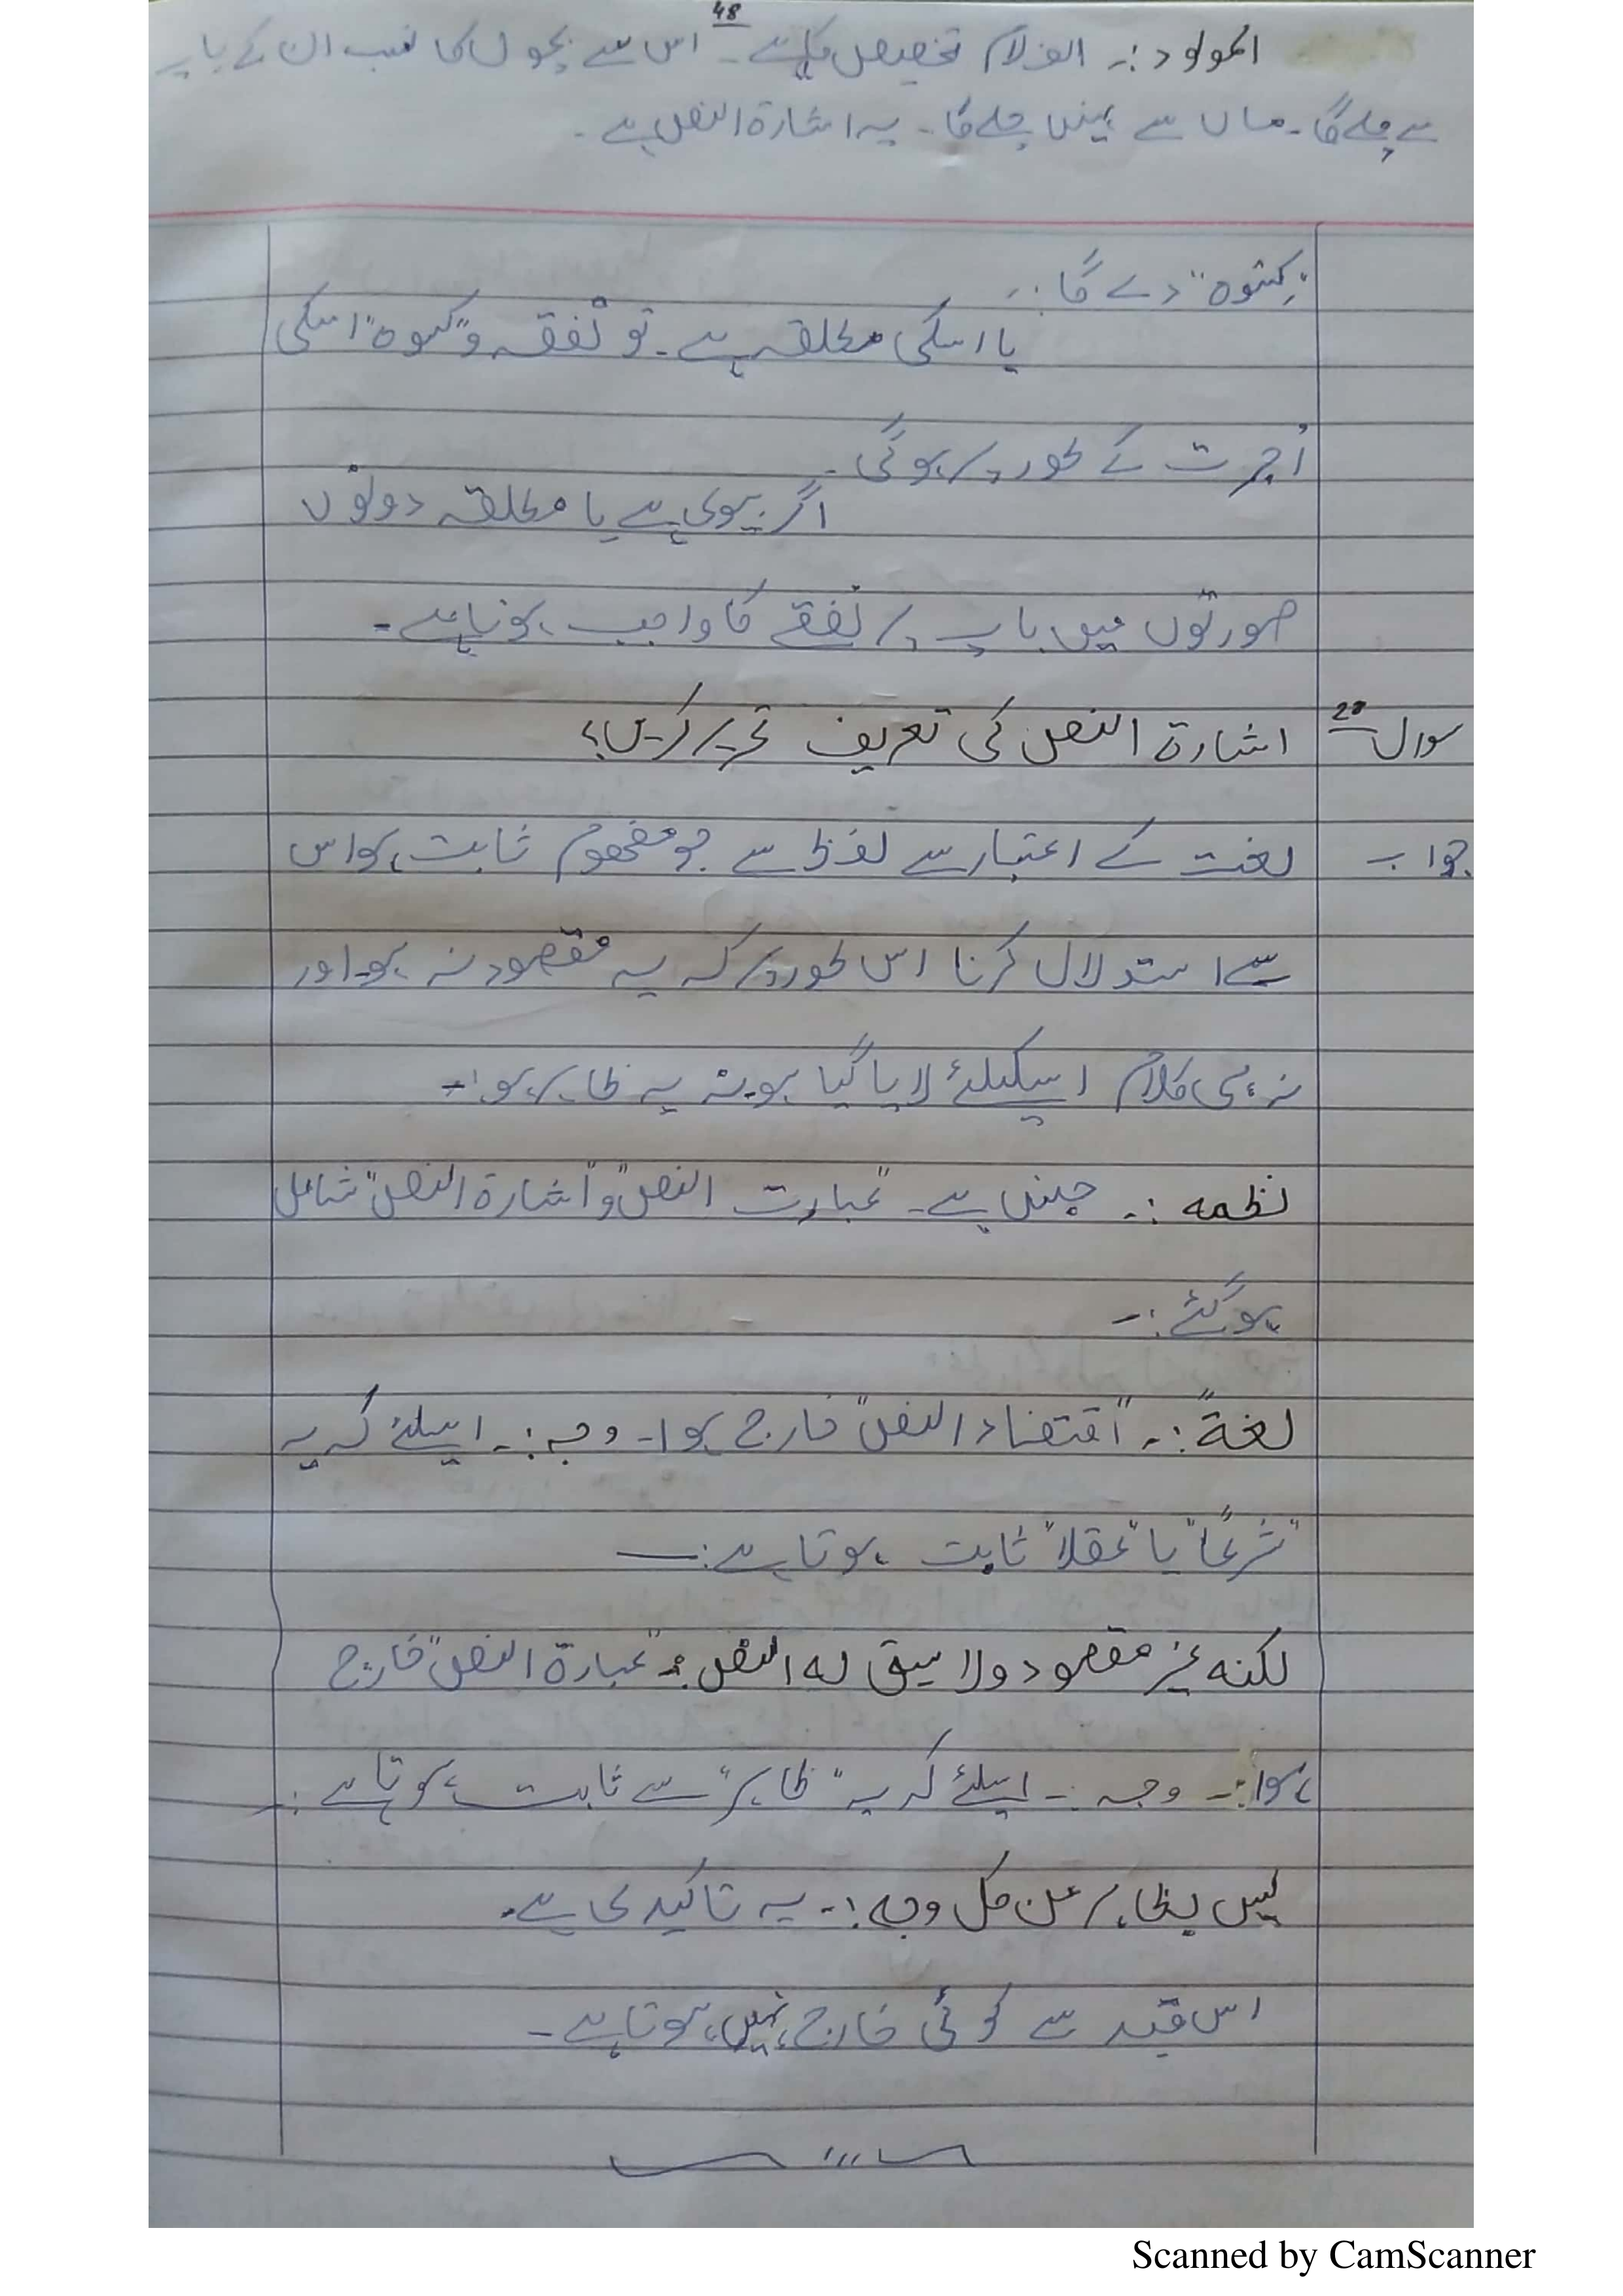 48
المولود:۔ الف لام تخصیص کا ہے۔ اس سے بچوں کا نسب ان کے باپ
سے چلے گا۔ ماں سے نہیں چلے گا۔ یہ اشارۃ النص ہے۔
"کِسْوہ" دے گا:۔
یا اسکی مطلقہ ہے۔ تو نفقہ و "کسوہ" اسکی
اُجرت کے طور پر ہوگی۔
اگر بیوی ہے یا مطلقہ دونوں
صورتوں میں باپ پر نفقے کا واجب ہونا ہے۔
سوال 20 اشارۃ النص کی تعریف تحریر کریں؟
جواب لغت کے اعتبار سے لفظ سے جو مفھوم ثابت ہو اس
سے استدلال کرنا اس طور پر کہ یہ مقصود نہ ہو اور
نہ ہی کلام اسکیلئے لایا گیا ہو نہ یہ ظاہر ہو:۔
نظمہ:۔ جنس ہے۔ "عبارت النص" و "اشارۃ النص" شامل
ہوگئے:۔
لغۃً:۔ "اقتضاء النص" خارج ہوا۔ وجہ:۔ اسلئے کہ یہ
"شرعًا" یا "عقلا" ثابت ہوتا ہے:۔
لکنہ غیر مقصود ولا سیق لہ النص:۔ "عبارۃ النص" خارج
ہوا:۔ وجہ:۔ اسلئے کہ یہ "ظاہر" سے ثابت ہوتا ہے:۔
لیس بظاہر من کل وجہ:۔ یہ تاکیدی ہے۔
اس قید سے کوئی خارج نہیں ہوتا ہے۔
Scanned by CamScanner